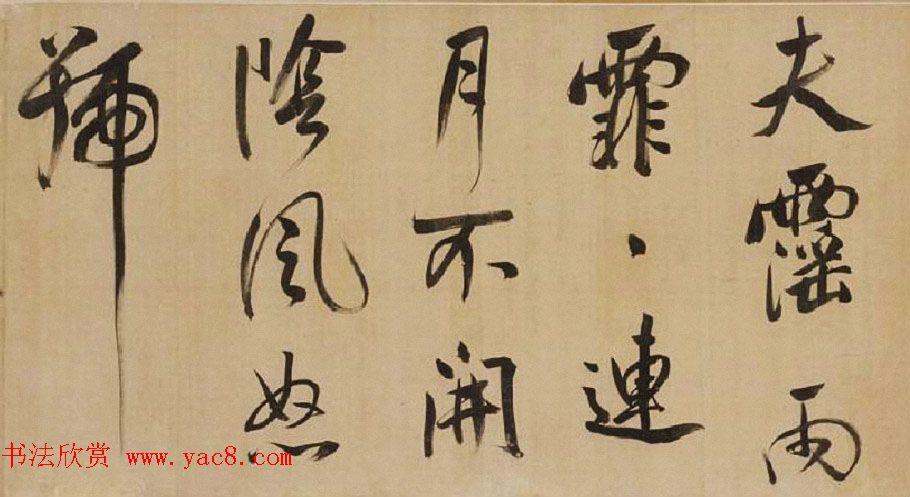 夫霪雨
霏、連
月不開
陰風怒
號
书法欣赏 www.yac8.com